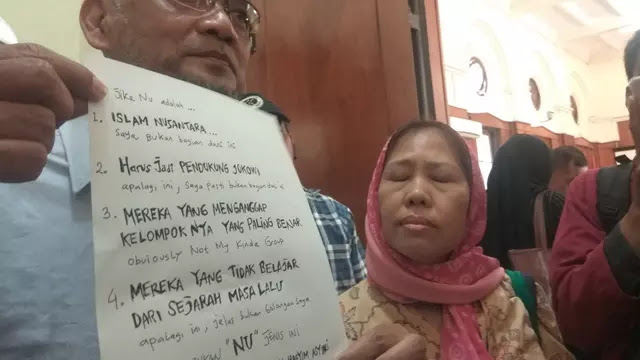 Jika Nu adalah...
1. ISLAM NUSANTARA...
saya bukan bagian dari ini
2. Harus Jadi PENDUKUNG JOKOWI
apalagi ini, saya pasti bukan bagian
3. MEREKA YANG MENGANGGAP
KELOMPOK NYA YANG PALING BENAR
obviously Not My Kinda Group
4. MEREKA YANG TIDAK BELAJAR
DARI SEJARAH MASA LALU
apalagi ini, jelas bukan Golongan saya
"NU" JENIS INI
HASYIM ASY'ARI